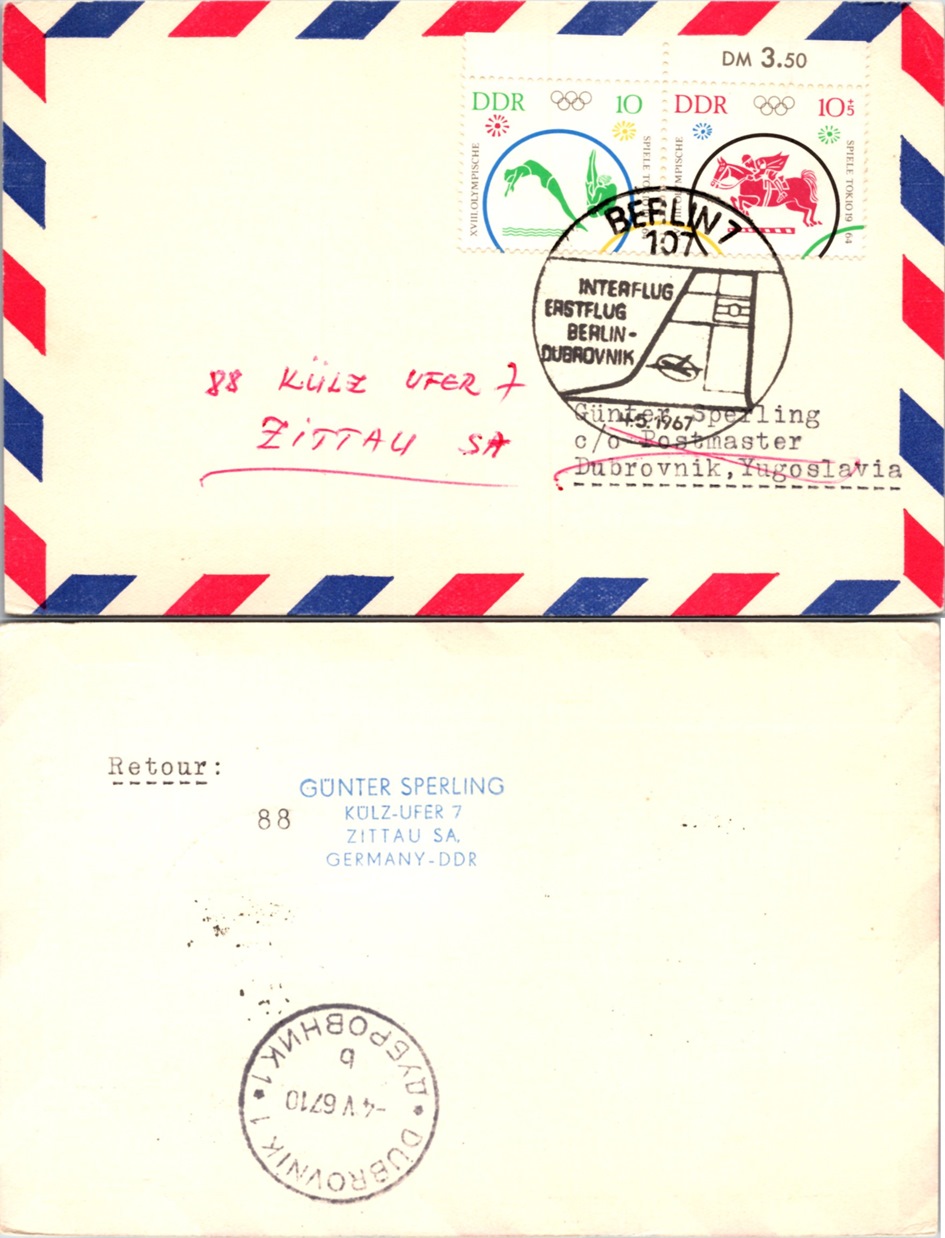 DM 3.50
DDR 10
XVIII.OLYMPISCHE
DDR 10+5
OLYMPISCHE
SPIELE TOKIO 1964
BERLIN 7
107
INTERFLUG
ERSTFLUG
BERLIN-
DUBROVNIK
4.5.1967
88 KÜLZ UFER 7
ZITTAU SA
Günter Sperling
c/o Postmaster
Dubrovnik, Yugoslavia
Retour:
GÜNTER SPERLING
88 KÜLZ-UFER 7
ZITTAU SA.
GERMANY-DDR
ДУБРОВНИК 1
b
-4 V 67 10
DUBROVNIK 1